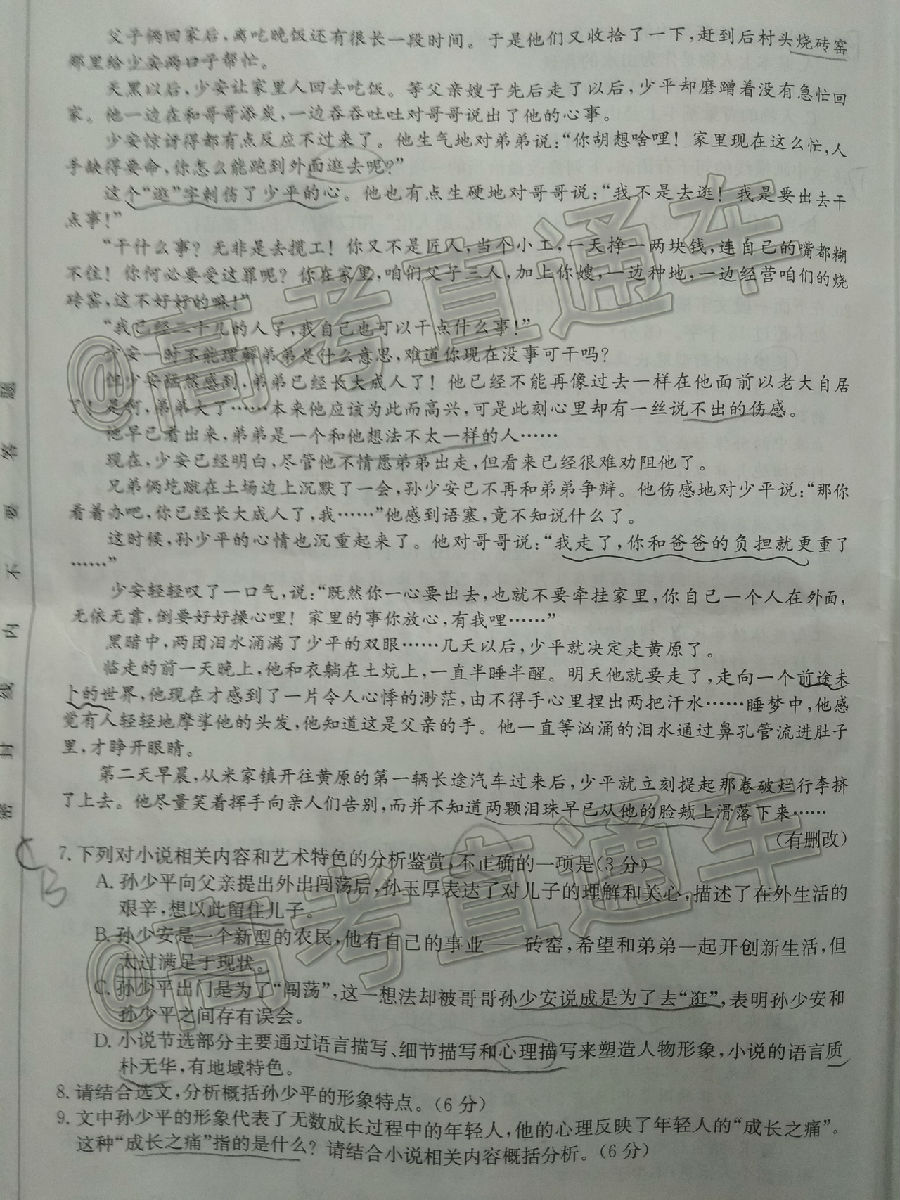 父子俩回家后，离吃晚饭还有很长一段时间。于是他们又收拾了一下，赶到后村头烧砖窑
那里给少安两口子帮忙。
天黑以后，少安让家里人回去吃饭。等父亲嫂子先后走了以后，少平却磨蹭着没有急忙回
家。他一边在和哥哥添炭，一边吞吞吐吐对哥哥说出了他的心事。
少安惊讶得都有点反应不过来了。他生气地对弟弟说：“你胡想啥哩！家里现在这么忙，人
手缺得要命，你怎么能跑到外面逛去呢？”
这个“逛”字刺伤了少平的心。他也有点生硬地对哥哥说：“我不是去逛！我是要出去干
点事！”
“干什么事？无非是去揽工！你又不是匠人，当个小工，一天挣一两块钱，连自己的嘴都糊
不住！你何必要受这罪呢？你在家里，咱们父子三人，加上你嫂，一边种地，一边经营咱们的烧
砖窑，这不好好的嘛！”
“我已经二十几的人了，我自己也可以干点什么事！”
少安一时不能理解弟弟是什么意思，难道你现在没事可干吗？
但少安猛然感到，弟弟已经长大成人了！他已经不能再像过去一样在他面前以老大自居
了！是啊，弟弟大了……本来他应该为此而高兴，可是此刻心里却有一丝说不出的伤感。
他早已看出来，弟弟是一个和他想法不太一样的人……
现在，少安已经明白，尽管他不情愿弟弟出走，但看来已经很难劝阻他了。
兄弟俩圪蹴在土场边上沉默了一会，孙少安已不再和弟弟争辩。他伤感地对少平说：“那你
看着办吧，你已经长大成人了，我……”他感到语塞，竟不知说什么了。
这时候，孙少平的心情也沉重起来了。他对哥哥说：“我走了，你和爸爸的负担就更重了
……”
少安轻轻叹了一口气，说：“既然你一心要出去，也就不要牵挂家里，你自己一个人在外面，
无依无靠，倒要好好操心哩！家里的事你放心，有我哩……”
黑暗中，两团泪水涌满了少平的双眼……几天以后，少平就决定走黄原了。
临走的前一天晚上，他和衣躺在土炕上，一直半睡半醒。明天他就要走了，走向一个前途未
卜的世界，他现在才感到了一片令人心悸的渺茫，由不得手心里捏出两把汗水……睡梦中，他感
觉有人轻轻地摩挲他的头发，他知道这是父亲的手。他一直等汹涌的泪水通过鼻孔管流进肚子
里，才睁开眼睛。
第二天早晨，从米家镇开往黄原的第一辆长途汽车过来后，少平就立刻提起那卷破烂行李挤
了上去。他尽量笑着挥手向亲人们告别，而并不知道两颗泪珠早已从他的脸颊上滑落下来……
（有删改）
7. 下列对小说相关内容和艺术特色的分析鉴赏，不正确的一项是（3分）
A. 孙少平向父亲提出外出闯荡后，孙玉厚表达了对儿子的理解和关心，描述了在外生活的
艰辛，想以此留住儿子。
B. 孙少安是一个新型的农民，他有自己的事业 砖窑，希望和弟弟一起开创新生活，但
太过满足于现状。
C. 孙少平出门是为了“闯荡”，这一想法却被哥哥孙少安说成是为了去“逛”，表明孙少安和
孙少平之间存有误会。
D. 小说节选部分主要通过语言描写、细节描写和心理描写来塑造人物形象，小说的语言质
朴无华，有地域特色。
8. 请结合选文，分析概括孙少平的形象特点。（6分）
9. 文中孙少平的形象代表了无数成长过程中的年轻人，他的心理反映了年轻人的“成长之痛”。
这种“成长之痛”指的是什么？请结合小说相关内容概括分析。（6分）
题
答
要
不
内
线
封
密
B
@高考直通车
@高考直通车